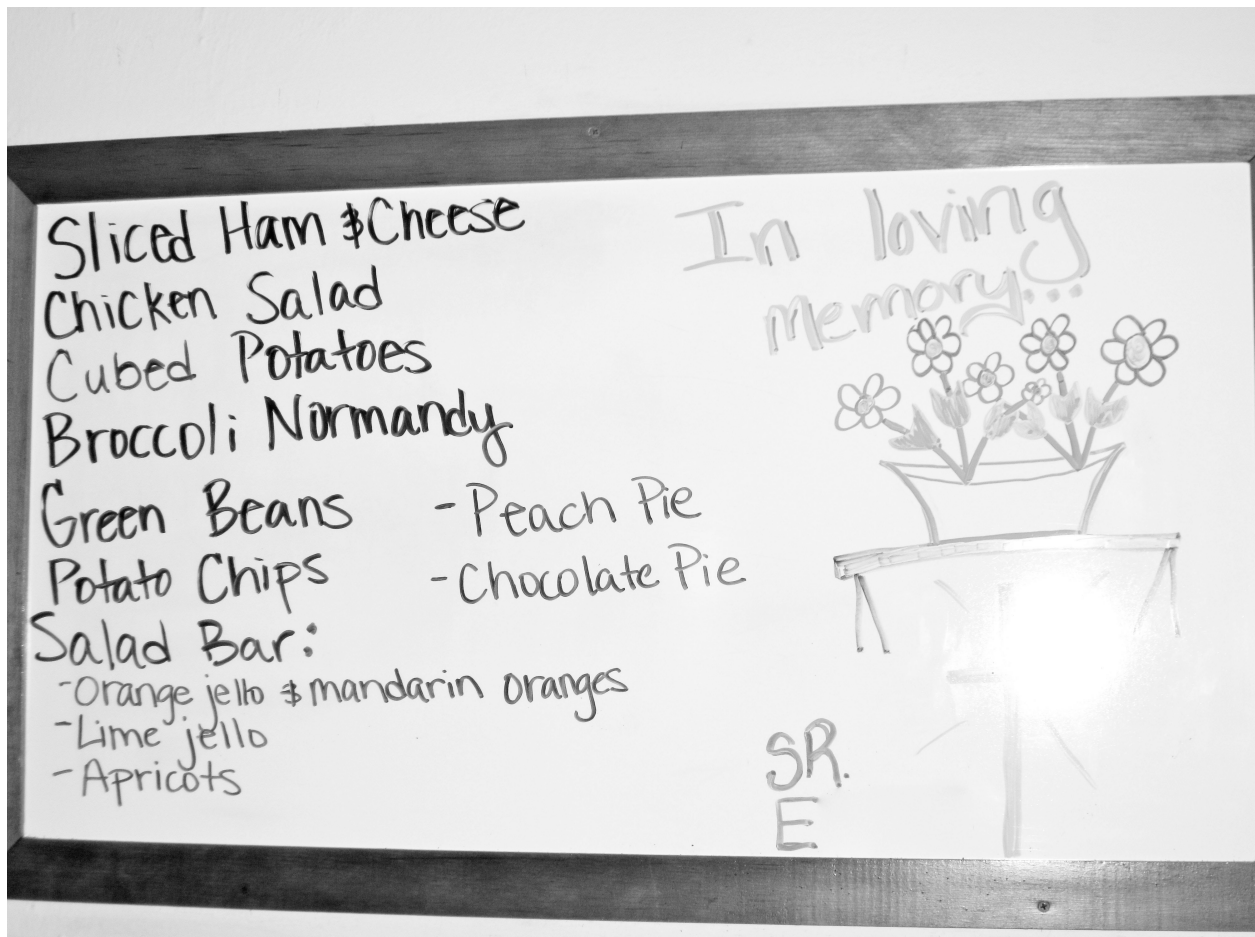 Sliced Ham & Cheese
Chicken Salad
Cubed Potatoes
Broccoli Normandy
Green Beans
Potato Chips
Salad Bar:
-Orange jello & mandarin oranges
-Lime jello
-Apricots
-Peach Pie
-Chocolate Pie
In loving
memory...
SR.
E